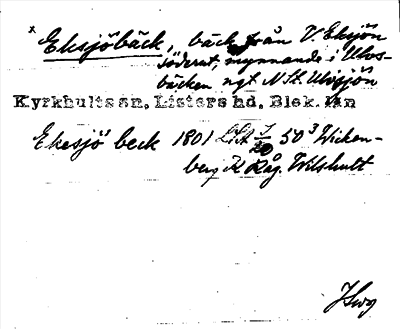 x Eksjöbäck, bäck från V. Eksjön
söderut, mynnande i Ulvs-
bäcken ngt N St. Ulvsjön
Kyrkhults sn. Listers hd. Blek. län
Ekesjö beck 1801 50³ Wicken-
berg K Råg. Wilshult